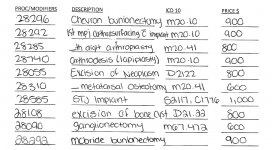 PROC/MODIFIERS DESCRIPTION ICD 10 PRICE $
28296 Chevron bunionectomy m20.10 900
28292 1st mpj arthrosurfacing c implant m20.10 900
28285 th digit arthroplasty m20.41 800
28740 Arthrodesis (lapiplasty) m20.10 900
28055 Excision of neoplasm D2122 800
28310 metatarsal osteotomy m20.41 600
28585 STJ implant S2117, C1776 1,000
28108 excision of bone cyst D21.22 800
28090 ganglionectomy m67.472 600
28292 mcbride bunionectomy 900